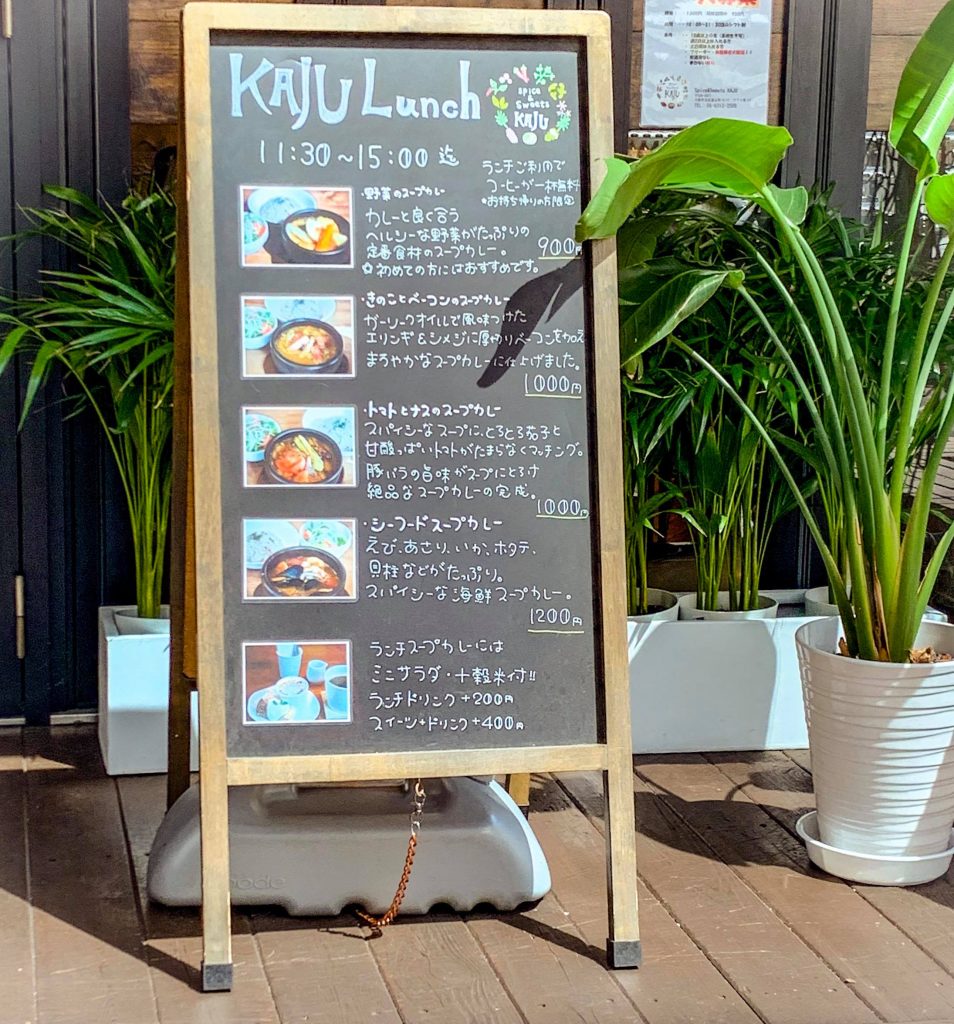 KAJU Lunch
spice & sweets KAJU
11:30～15:00 迄
ランチご利用で
コーヒーが一杯無料
*お持ち帰りの方限定
・野菜のスープカレー
カレーと良く合う
ヘルシーな野菜がたっぷりの
定番食材のスープカレー。
✿初めての方にはおすすめです。
900円
・きのことベーコンのスープカレー
ガーリックオイルで風味つけた
エリンギ&シメジに厚切りベーコンを加え
まろやかなスープカレーに仕上げました。
1000円
・トマトとナスのスープカレー
スパイシーなスープに、とろとろ茄子と
甘酸っぱいトマトがたまらなくマッチング。
豚バラの旨味がスープにとろけ
絶品なスープカレーの完成。
1000円
・シーフードスープカレー
えび、あさり、いか、ホタテ、
貝柱などがたっぷり。
スパイシーな海鮮スープカレー。
1200円
ランチスープカレーには
ミニサラダ・十穀米付!!
ランチドリンク+200円
スイーツ+ドリンク+400円
KAJU
Spice&Sweets KAJU